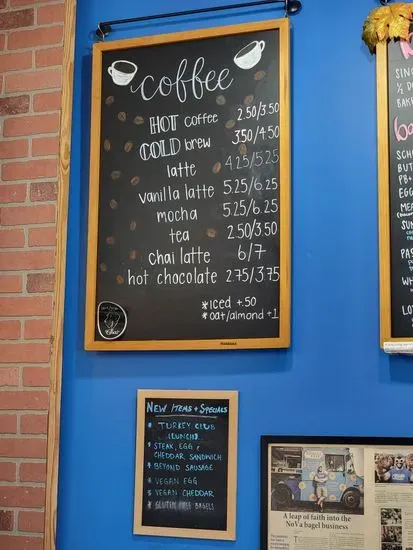 coffee
HOT coffee 2.50/3.50
COLD brew 3.50/4.50
latte 4.25/5.25
vanilla latte 5.25/6.25
mocha 5.25/6.25
tea 2.50/3.50
chai latte 6/7
hot chocolate 2.75/3.75
*iced +.50
*oat/almond +1
NEW ITEMS + SPECIALS
* TURKEY CLUB
(LUNCH)
* STEAK, EGG +
CHEDDAR SANDWICH
* BEYOND SAUSAGE
* VEGAN EGG
* VEGAN CHEDDAR
* GLUTEN FREE BAGELS
A leap of faith into the
NoVa bagel business
SIN
1/2 D
BAK
ba
SCH
BUT
PB+
EGG
MEA
SUN
PAS
WH
LO